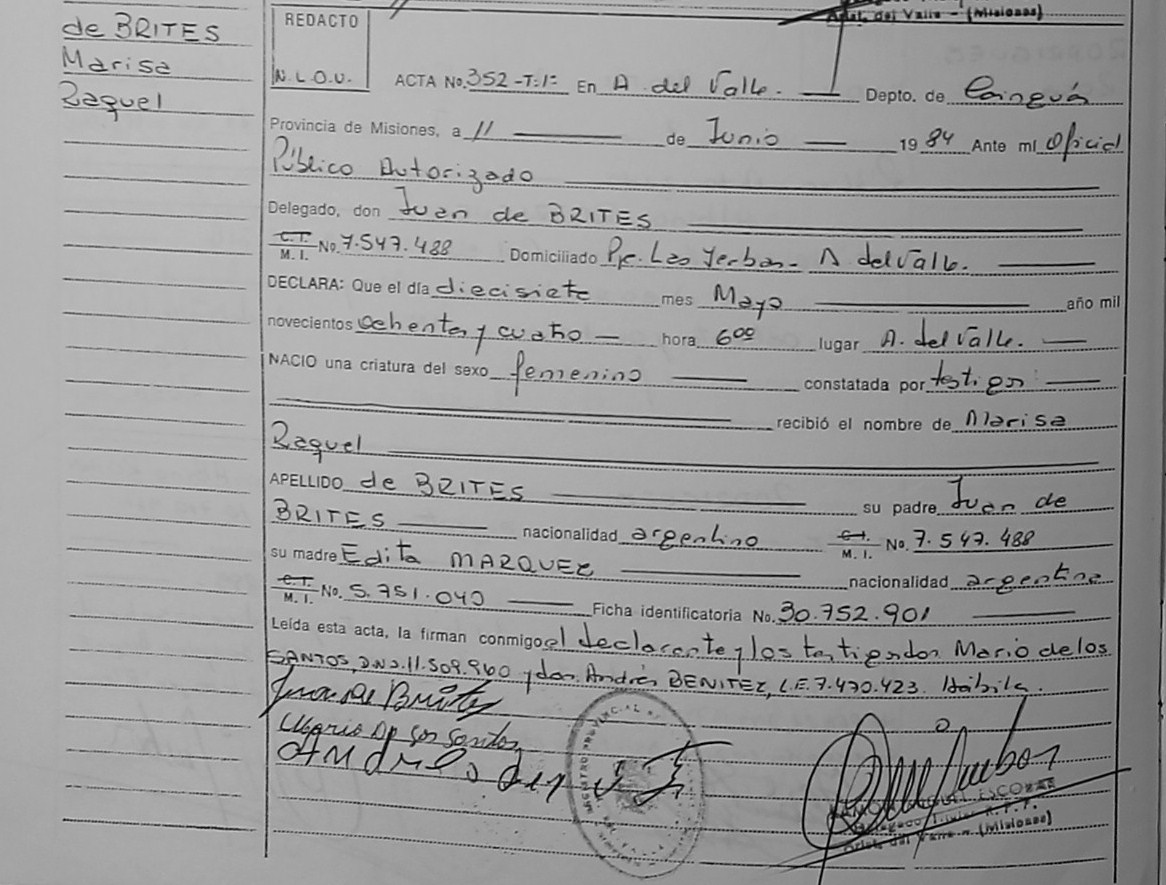 Arist. del Valle - (Misiones)
de BRITES
Marisa
Raquel
REDACTO
N.L.O.V.
ACTA No. 352-T:1º En A. del Valle. Depto. de Cainguás
Provincia de Misiones, a 11 de Junio 19 84 Ante mí Oficial
Público Autorizado
Delegado, don Juan de BRITES
C.I. M. I. No. 7.547.488 Domiciliado Pje. Las Yerbas - A del Valle.
DECLARA: Que el día diecisiete mes Mayo año mil
novecientos ochenta y cuatro hora 6⁰⁰ lugar A. del Valle.
NACIO una criatura del sexo femenino constatada por testigos
recibió el nombre de Marisa
Raquel
APELLIDO de BRITES su padre Juan de
BRITES nacionalidad argentino C.I. M. I. No. 7.547.488
su madre Edita MARQUEZ nacionalidad argentina
C.I. M. I. No. 5.751.040 Ficha identificatoria No. 30.752.901
Leída esta acta, la firman conmigo el declarante y los testigos don Mario de los
SANTOS, D.N.I. 11.509.960 y don Andrés BENITEZ, L.E. 7.470.423. Hábiles.
Juan de Brites
Mario De los Santos
REGISTRO PROVINCIAL
RAMON MIGUEL ESCOBAR
Delegado Titular R.P.P.
Arist. del Valle - (Misiones)